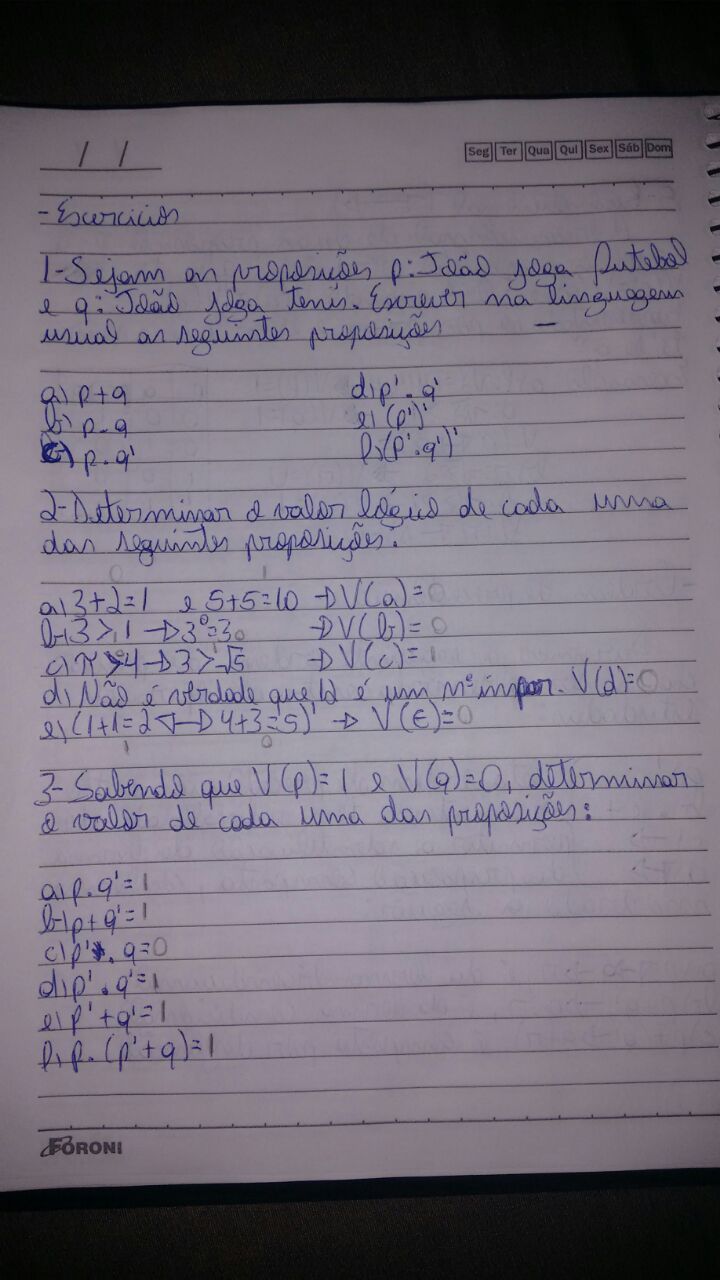 / /
Seg Ter Qua Qui Sex Sáb Dom
- Exercicios
1- Sejam as proposições p: João joga futebol
e q: João joga tenis. Escrever na linguagem
usual as seguintes proposições
a) p + q
d) p' . q'
b) p . q
e) (p')'
c) p . q'
f) (p' . q')'
2- Determinar o valor lógico de cada uma
das seguintes proposições:
0 1
a) 3+2=1 e 5+5=10 → V(a)=0
b) 3 > 1 → 3⁰=3 → V(b)=0
1 0
c) π > 4 → 3 > √5 → V(c)=1
d) Não é verdade que 12 é um nº impar. V(d)=0
e) (1+1=2 ↔ 4+3=5)' → V(E)=0
1 0
3- Sabendo que V(p)=1 e V(q)=0, determinar
o valor de cada uma das proposições:
a) p . q' = 1
b) p + q' = 1
c) p' . q = 0
d) p' . q' = 1
e) p' + q' = 1
f) p . (p' + q) = 1
FORONI